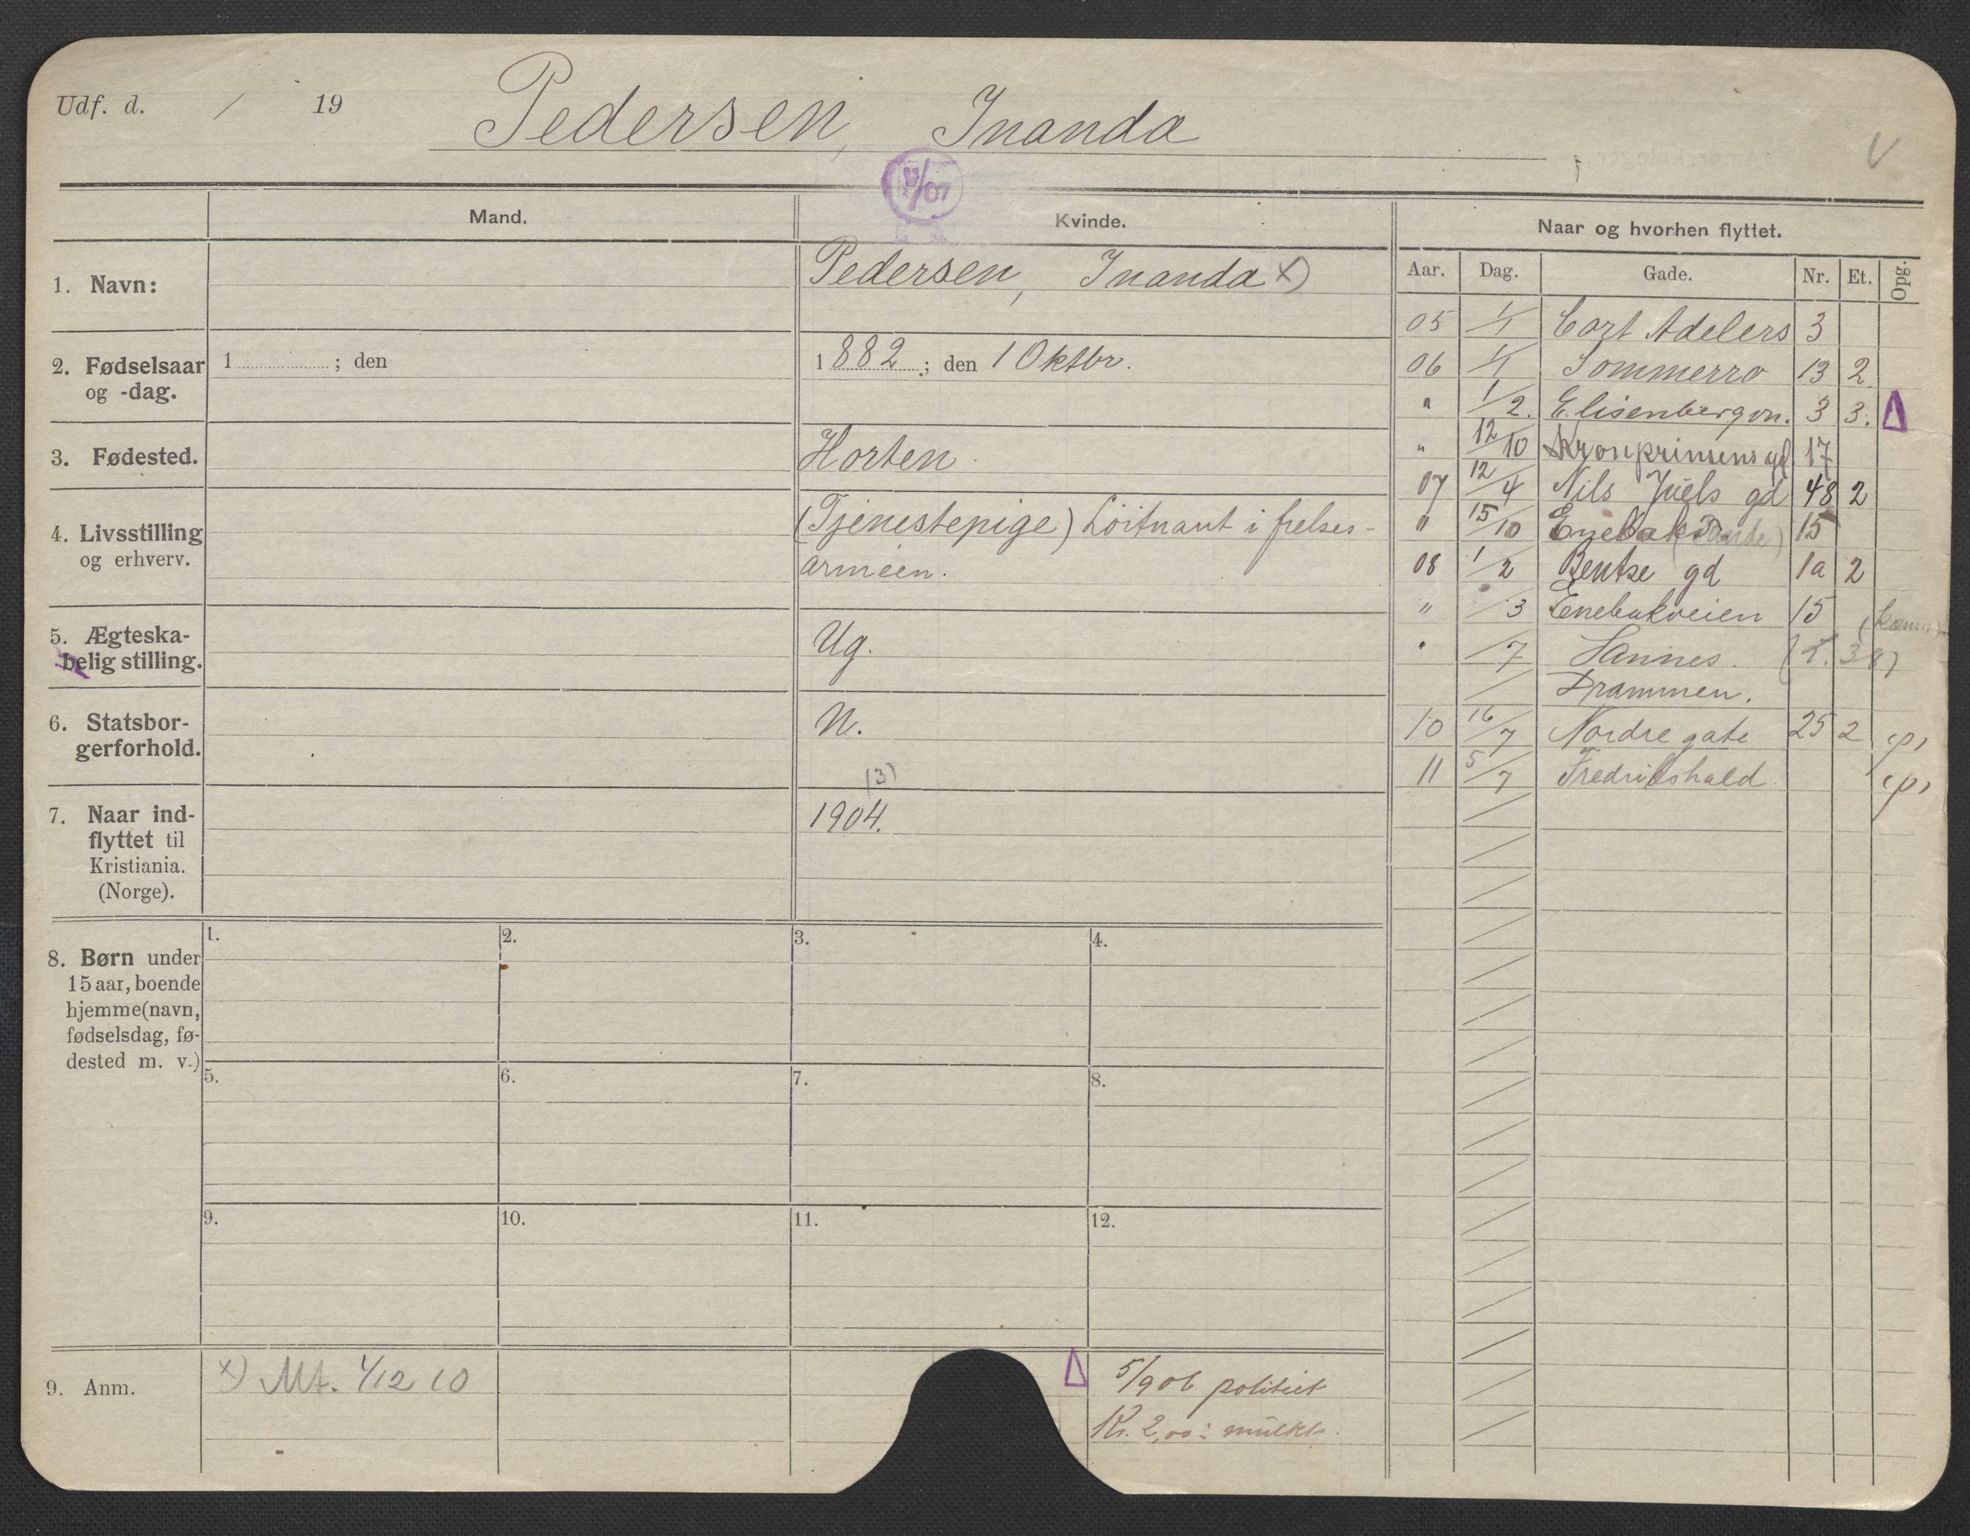 Udf. d. / 19
Pedersen, Inanda
V
/07
Mand.
Kvinde.
Naar og hvorhen flyttet.
Aar. Dag. Gade. Nr. Et. Opg.
1. Navn:
Pedersen, Inanda x)
2. Fødselsaar
og -dag.
1 ; den
1882; den 1 Oktbr.
3. Fødested.
Horten.
4. Livsstilling
og erhverv.
(Tjenestepige) Löitnant i frelses-
armeen.
5. Ægteska-
belig stilling.
Ug.
6. Statsbor-
gerforhold.
N.
7. Naar ind-
flyttet til
Kristiania.
(Norge).
(3)
1904.
05 1/1 Cort Adelers 3
06 1/1 Sommerro 13 2
" 1/2. Elisenbergvn. 3 3.
" 12/10 Kronprinsens gd 17
07 12/4 Nils Juels gd 48 2
" 15/10 Enebak 15
08 1/2 Bentse gd 1a 2
" /3 Enebakveien 15
" /7 Sannes.
Drammen.
10 16/7 Nordre gate 25 2
11 5/7 Fredrikshald
8. Børn under
15 aar, boende
hjemme (navn,
fødselsdag, fø-
dested m. v.)
1. 2. 3. 4.
5. 6. 7. 8.
9. 10. 11. 12.
9. Anm.
x) Mt. 1/12 10
5/9 06 politiet
Kr. 2,00: mulkt.